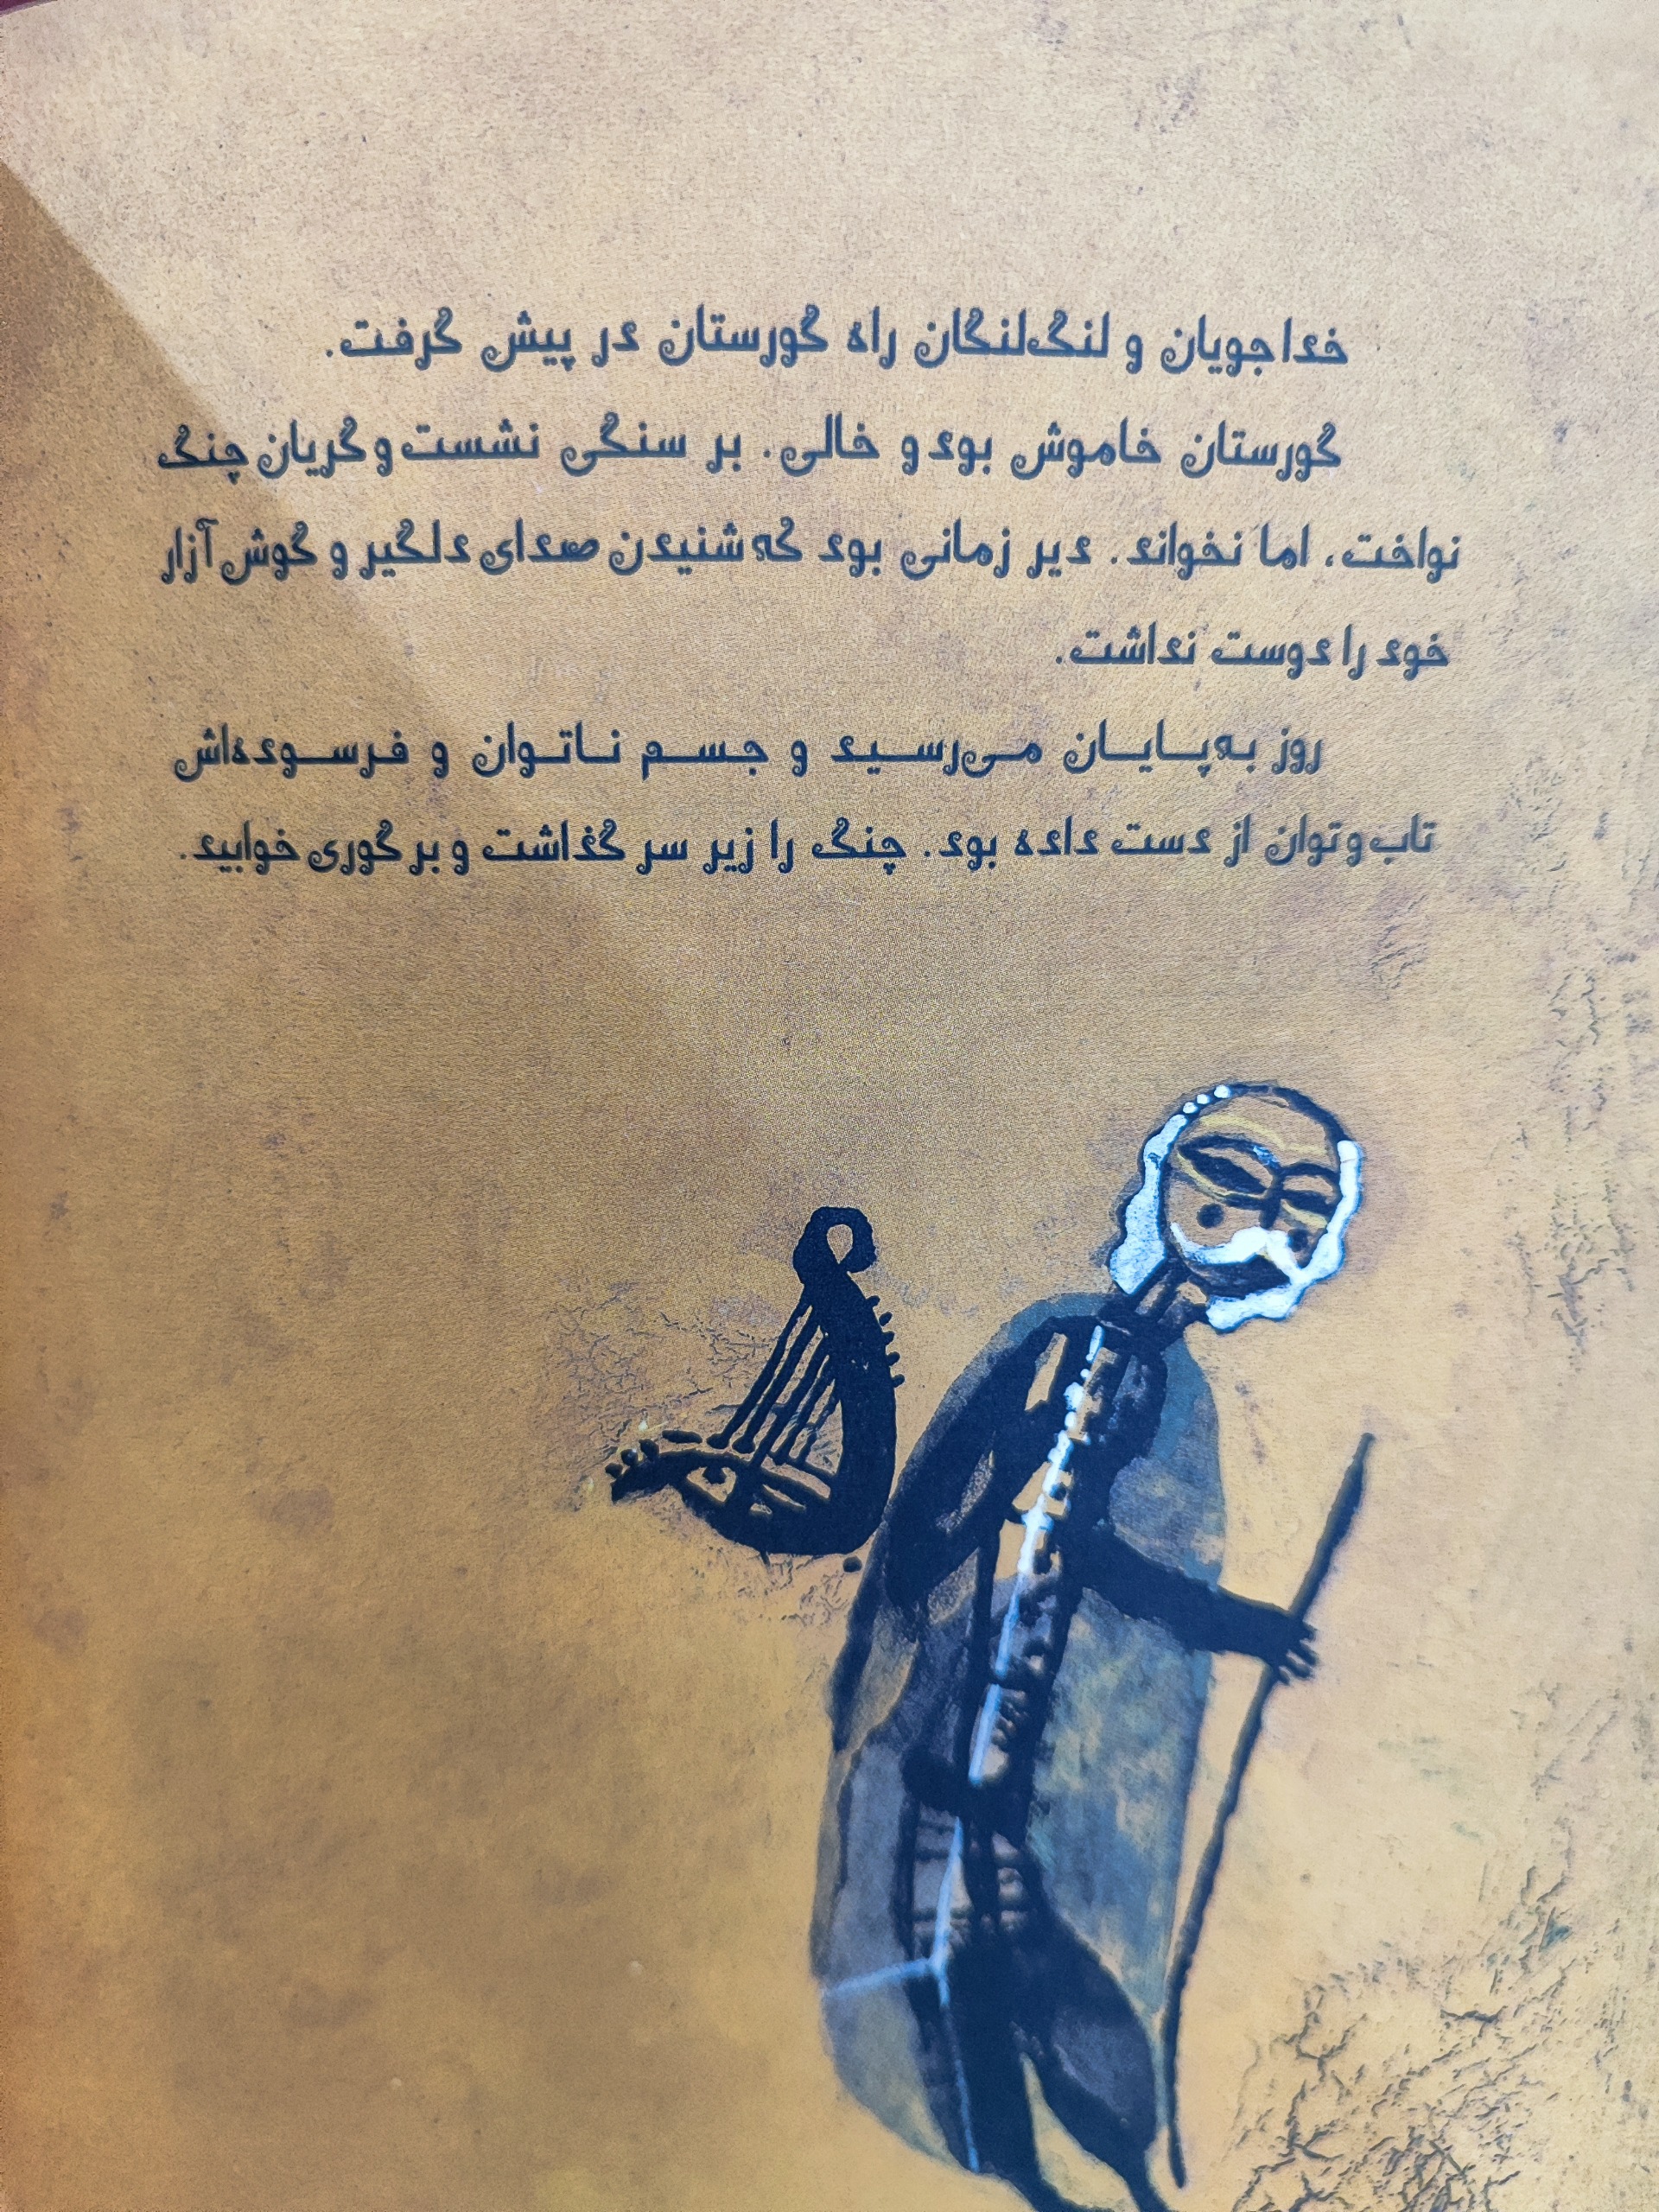 خداجویان و لنگ‌لنگان راه گورستان در پیش گرفت.
گورستان خاموش بود و خالی. بر سنگی نشست و گریان چنگ
نواخت، اما نخواند. دیر زمانی بود که شنیدن صدای دلگیر و گوش آزار
خود را دوست نداشت.
روز به‌پایان می‌رسید و جسم ناتوان و فرسوده‌اش
تاب‌و‌توان از دست داده بود. چنگ را زیر سر گذاشت و بر گوری خوابید.